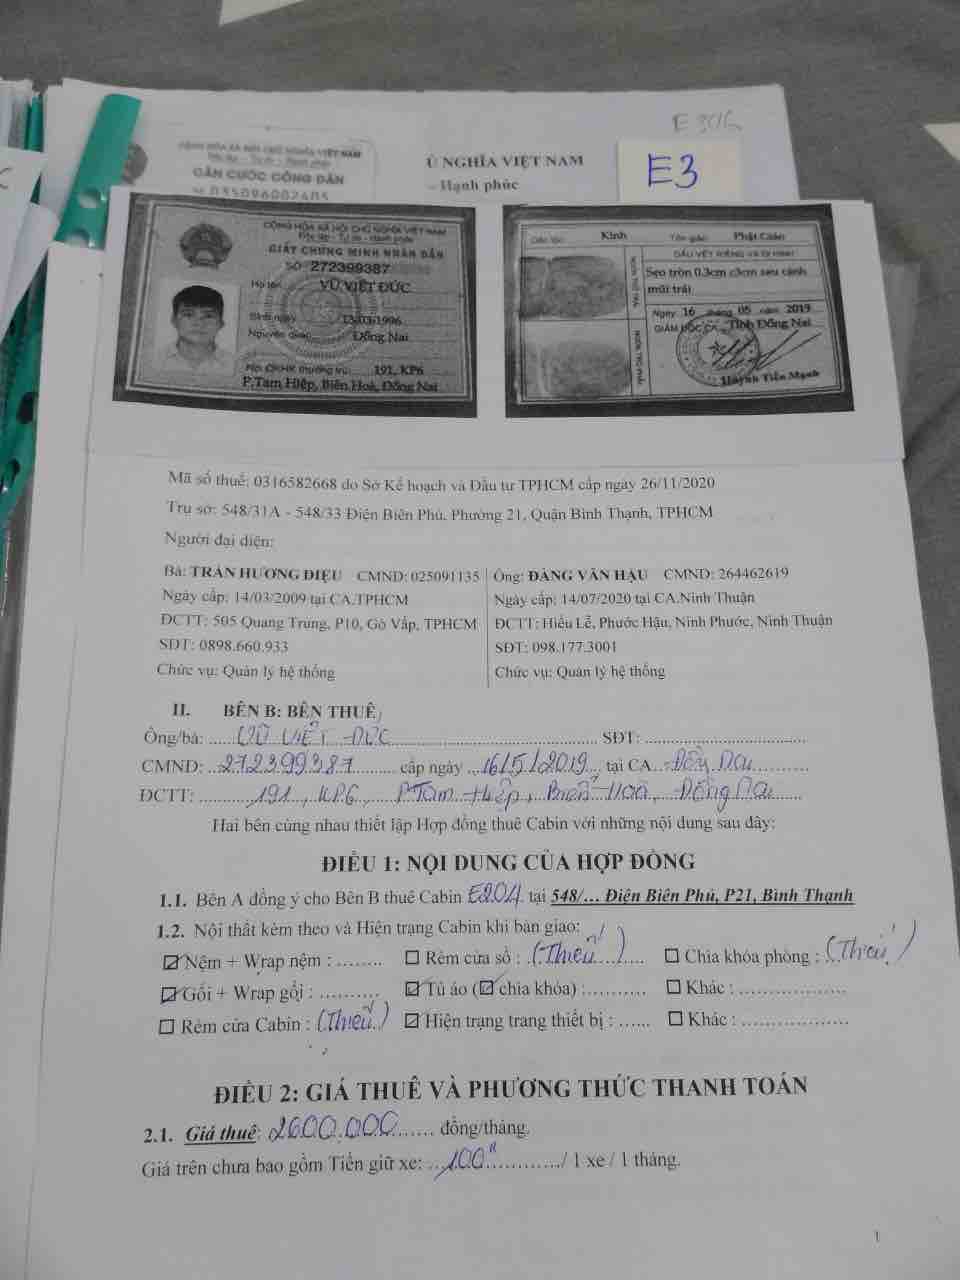 E 304
E3
CỘNG HÒA XÃ HỘI CHỦ NGHĨA VIỆT NAM
CĂN CƯỚC CÔNG DÂN
Ủ NGHĨA VIỆT NAM
- Hạnh phúc
CỘNG HÒA XÃ HỘI CHỦ NGHĨA VIỆT NAM
Độc lập - Tự do - Hạnh phúc
GIẤY CHỨNG MINH NHÂN DÂN
SỐ 272399387
Họ tên: VŨ VIỆT ĐỨC
Sinh ngày 13/03/1996
Nguyên quán Đồng Nai
Nơi ĐKHK thường trú: 191, KP6
P.Tam Hiệp, Biên Hoà, Đồng Nai
Dân tộc: Kinh Tôn giáo: Phật Giáo
DẤU VẾT RIÊNG VÀ DỊ HÌNH
Sẹo tròn 0.3cm c3cm sau cánh
mũi trái
Ngày 16 tháng 05 năm 2019
GIÁM ĐỐC CA Tỉnh Đồng Nai
Huỳnh Tiến Mạnh
NGÓN TRỎ TRÁI
NGÓN TRỎ PHẢI
Mã số thuế: 0316582668 do Sở Kế hoạch và Đầu tư TPHCM cấp ngày 26/11/2020
Trụ sở: 548/31A - 548/33 Điện Biên Phủ, Phường 21, Quận Bình Thạnh, TPHCM
Người đại diện:
Bà: TRẦN HƯƠNG DIỆU CMND: 025091135
Ngày cấp: 14/03/2009 tại CA.TPHCM
ĐCTT: 505 Quang Trung, P10, Gò Vấp, TPHCM
SĐT: 0898.660.933
Chức vụ: Quản lý hệ thống
Ông: ĐÀNG VĂN HẬU CMND: 264462619
Ngày cấp: 14/07/2020 tại CA.Ninh Thuận
ĐCTT: Hiếu Lễ, Phước Hậu, Ninh Phước, Ninh Thuận
SĐT: 098.177.3001
Chức vụ: Quản lý hệ thống
II. BÊN B: BÊN THUÊ
Ông/bà: VŨ VIỆT ĐỨC SĐT:
CMND: 272399387 cấp ngày 16/5/2019 tại CA Đồng Nai
ĐCTT: 191, KP6, P Tam Hiệp, Biên Hoà, Đồng Nai
Hai bên cùng nhau thiết lập Hợp đồng thuê Cabin với những nội dung sau đây:
ĐIỀU 1: NỘI DUNG CỦA HỢP ĐỒNG
1.1. Bên A đồng ý cho Bên B thuê Cabin E204 tại 548/... Điện Biên Phủ, P21, Bình Thạnh
1.2. Nội thất kèm theo và Hiện trạng Cabin khi bàn giao:
☑ Nệm + Wrap nệm : ........ ☐ Rèm cửa sổ : (Thiếu) ☐ Chìa khóa phòng : (Thiếu)
☑ Gối + Wrap gối : .......... ☑ Tủ áo (☑ chìa khóa) :.......... ☐ Khác : ..................
☐ Rèm cửa Cabin : (Thiếu) ☑ Hiện trạng trang thiết bị : ...... ☐ Khác : ..................
ĐIỀU 2: GIÁ THUÊ VÀ PHƯƠNG THỨC THANH TOÁN
2.1. Giá thuê: 2600.000 đồng/tháng.
Giá trên chưa bao gồm Tiền giữ xe: 100k / 1 xe / 1 tháng.
1